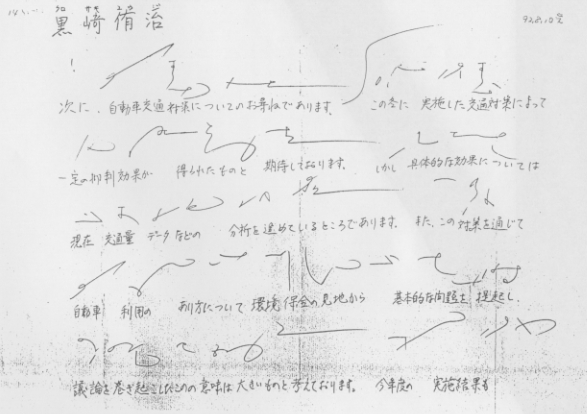 黒崎侑治
次に、自動車交通対策についてのお尋ねであります。この冬に実施した交通対策によって
一定の抑制効果が得られたものと期待しております。しかし具体的な効果については
現在交通量データなどの分析を進めているところであります。また、この対策を通じて
自動車利用のあり方について環境保全の見地から基本的な問題を提起し、
議論を巻き起こしたこの意味は大きいものと考えております。今年度の実施結果も